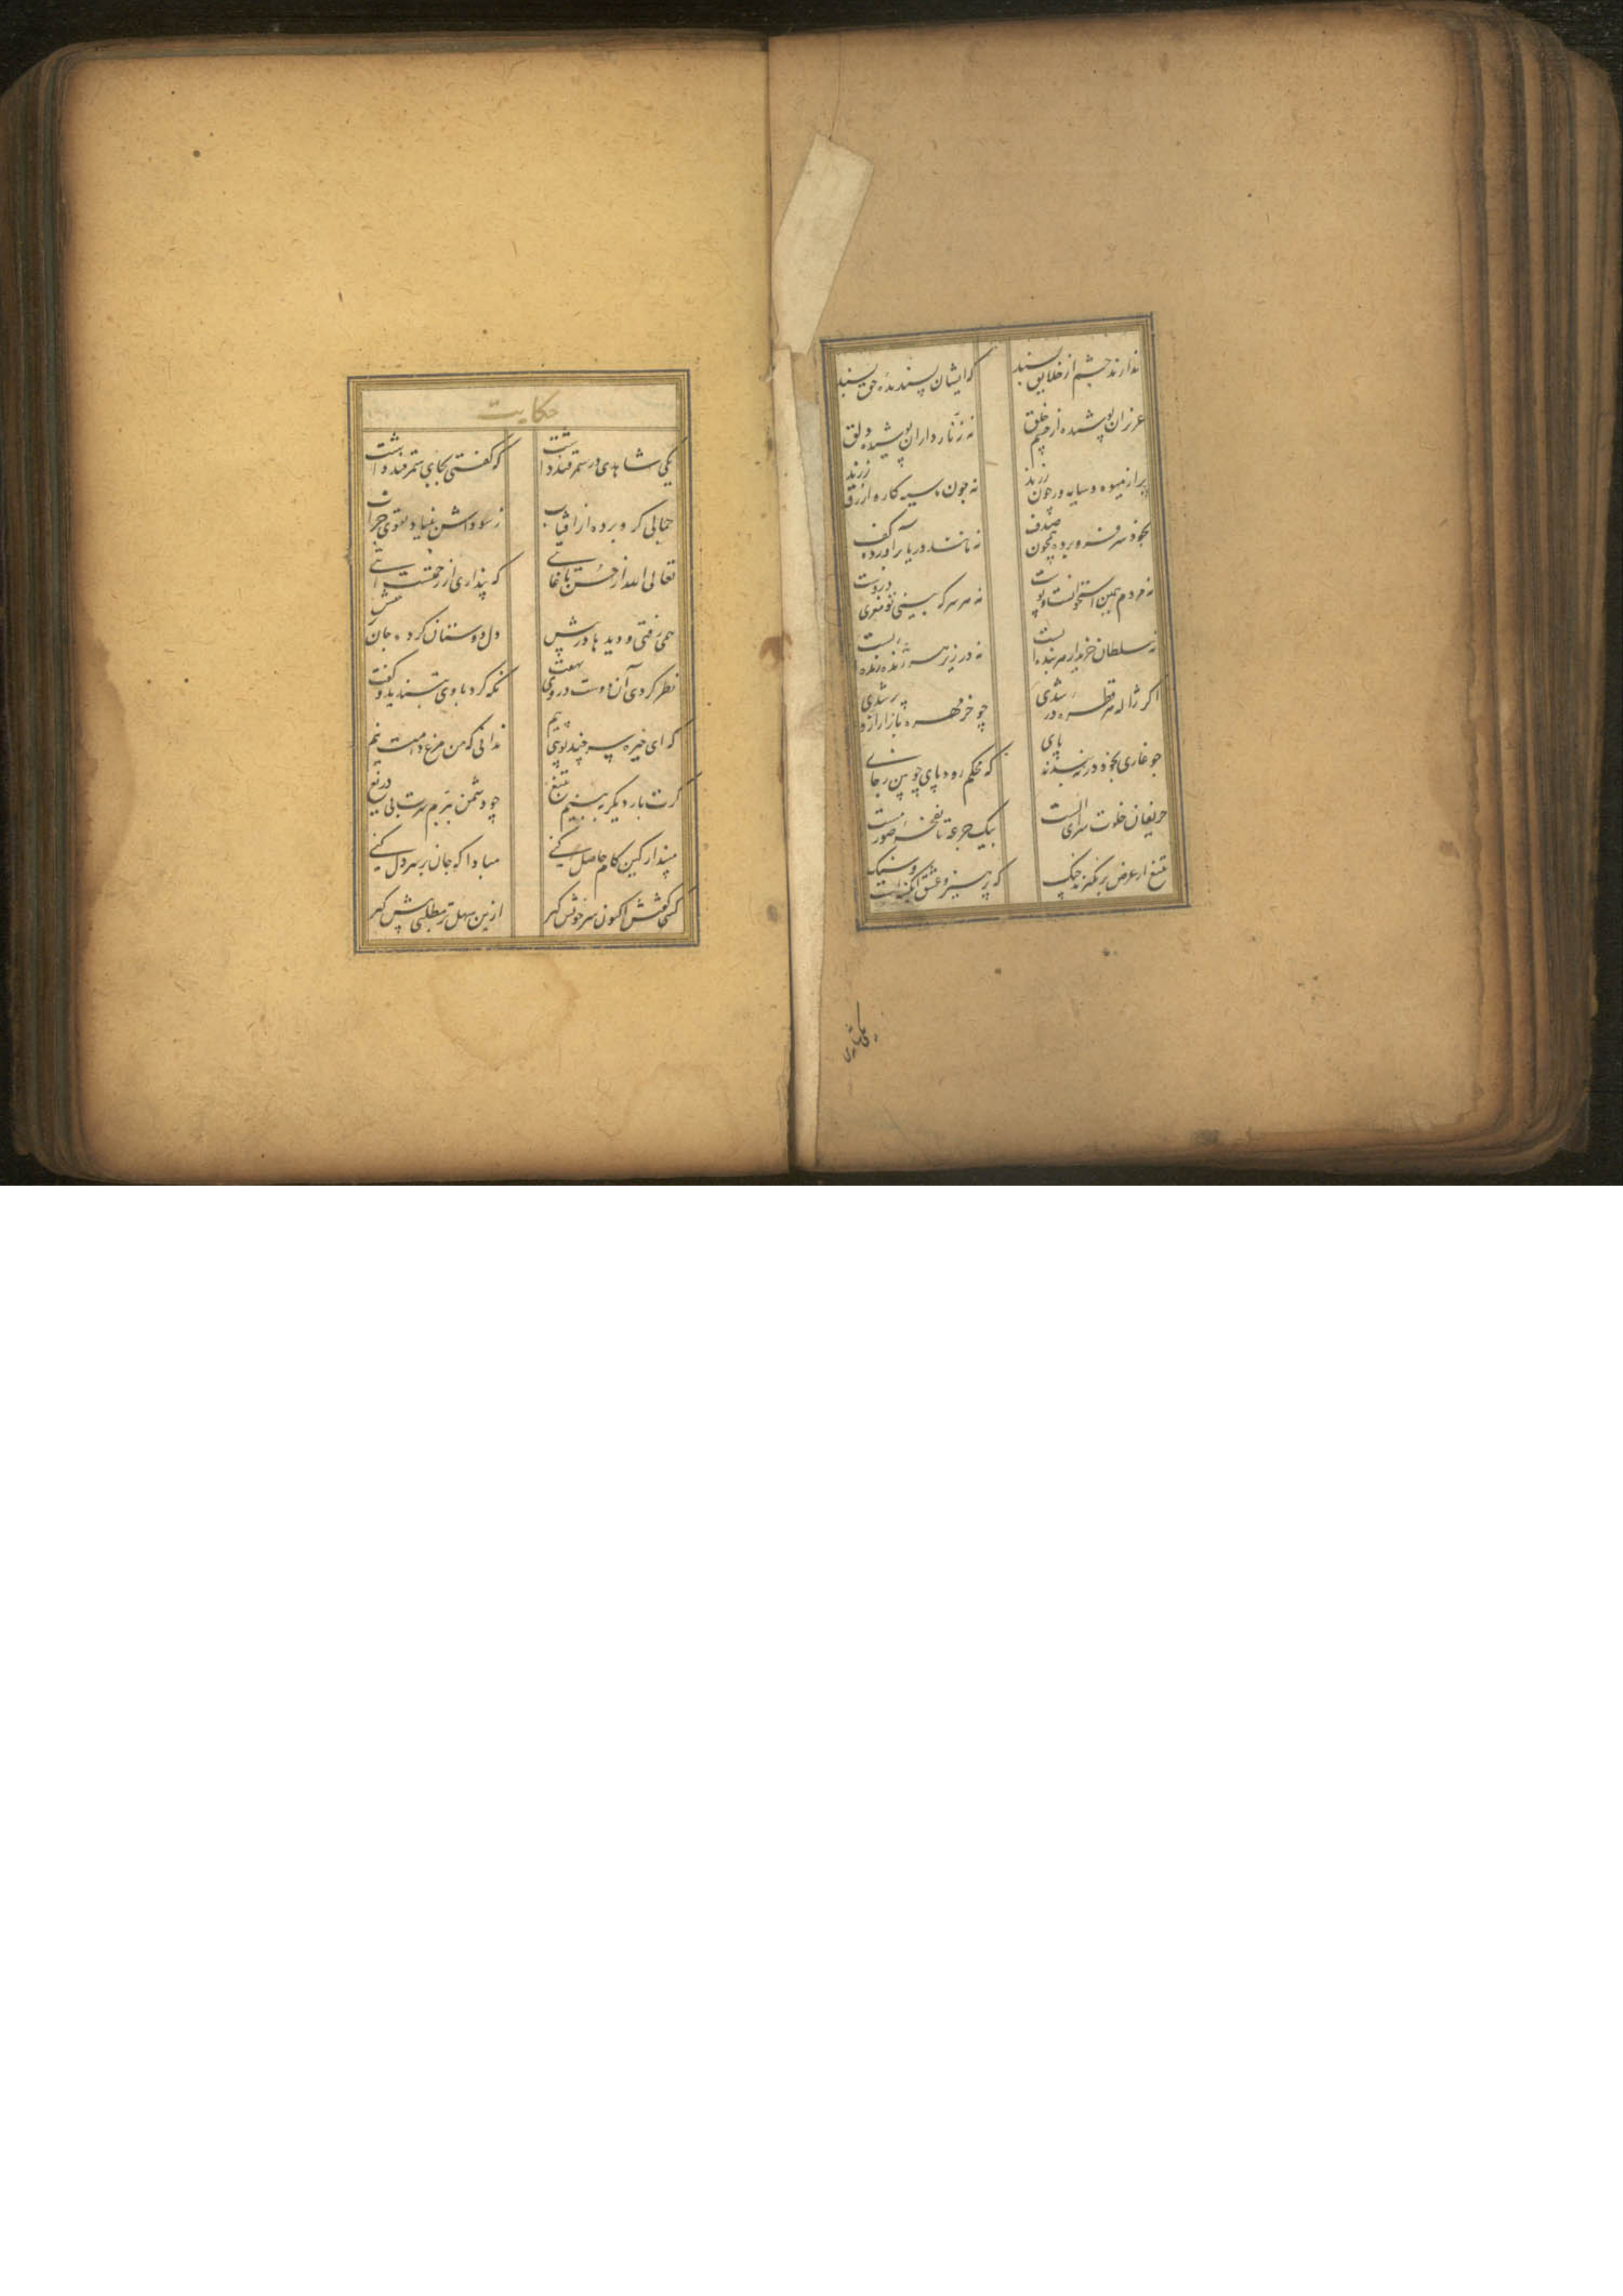 ندارند چشم از خلایق پسند که ایشان پسندیده حق پسند
عزیزان پوشیده از چشم خلق نه زنار داران پوشیده دلق
پر از میوه و سایه ور چون رزند نه چون ما سیه کار و ازرق رزند
بخود سر فرو برده همچون صدف نه مانند دریا برآورده کف
نه مردم همین استخوانست و پوست نه هر سر که بینی تو مغزی دروست
نه سلطان خریدار هر بنده ایست نه در زیر هر ژنده زنده ایست
اگر ژاله هر قطره در شدی چو خرمهره بازار ازو پر شدی
چو غازی بخود در نبندند پای که محکم رود پای چوبین ز جای
حریفان خلوت سرای الست بیک جرعه تا نفخه صور مست
بتیغ از غرض بر نگیرند چنک که پرهیز و عشق آبگینه است و سنک
حکایت
یکی شاهدی در سمرقند داشت که گفتی بجای سمر قند داشت
جمالی گرو برده از آفتاب ز سوداش بنیاد تقوی خراب
تعالی الله از حسن تا غایتی که پنداری از رحمتست آیتی
همی رفتی و دیدها در پیش دل دوستان کرده جان برخیش
نظر کردی آن دوست در وی نهفت نگه کرد باری بتندید و گفت
که ای خیره سر چند پویی پیم ندانی که من مرغ دامت نیم
گرت بار دیگر ببینم بتیغ چو دشمن ببرم سرت بی دریغ
مپندار کین کام حاصل کنی مبادا که جان بر سر دل کنی
کسی گفتش اکنون سر خویش گیر ازین سهل تر مطلبی پیش گیر